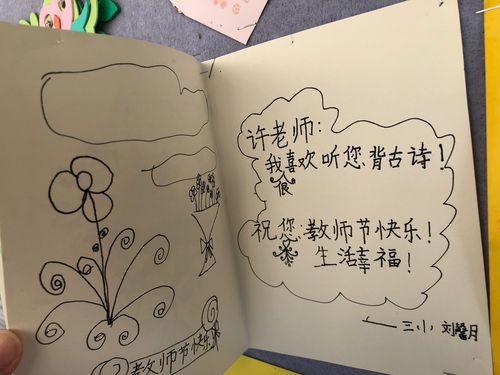 许老师:
我喜欢听您背古诗!
很
祝您:教师节快乐!
生活幸福!
——三小 刘馨月
教师节快乐